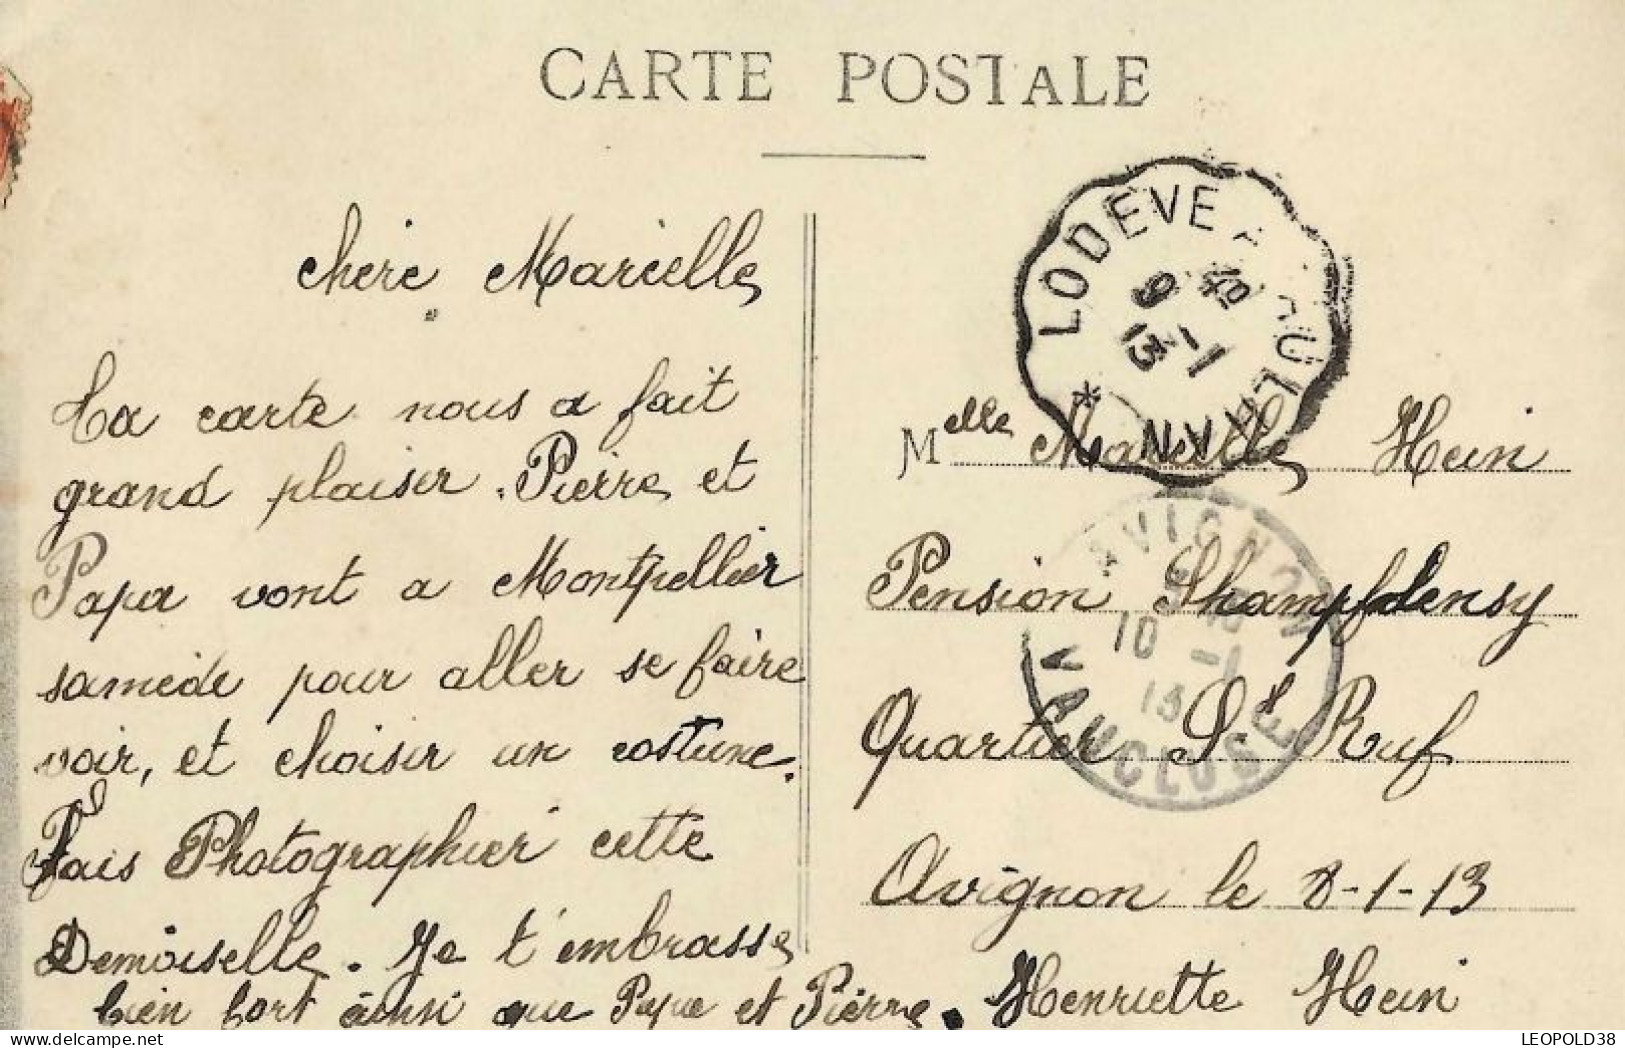 CARTE POSTALE
chere Marcelle
Ta carte nous a fait
grand plaiser. Pierre et
Papa vont a Montpellier
samede pour aller se faire
voir, et choiser un costume.
Fais Photographier cette
Demoiselle. Je t'embrasse
bien fort ainsi que Papa et Pierre. Henriette Hein
LODEVE A PAULHAN *
9 -1
13
Melle Marcelle Hein
AVIGNON
10 -1
13
VAUCLUSE
Pension
Quartier St Ruf
Avignon le 8-1-13
LEOPOLD38